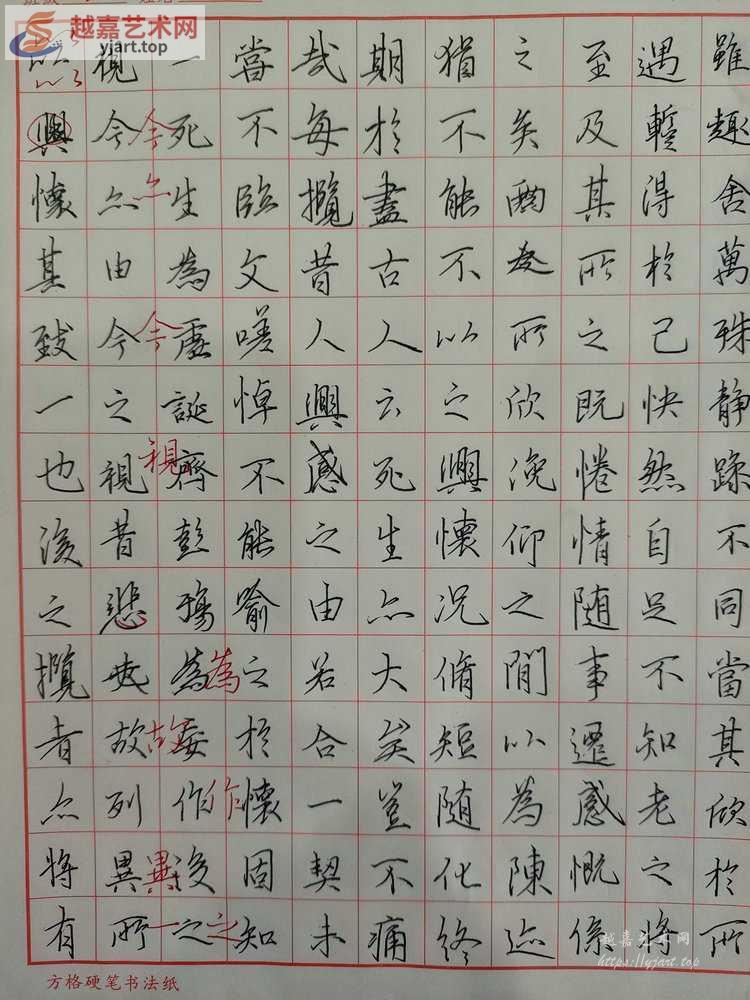 越嘉艺术网
yjart.top
雖趣舍萬殊静躁不同當其欣於所
遇蹔得於己快然自足不知老之將
至及其所之既惓情随事遷感慨係
之矣向之所欣俛仰之間以為陳迹
猶不能不以之興懷況脩短随化終
期於盡古人云死生亦大矣豈不痛
哉每攬昔人興感之由若合一契未
嘗不臨文嗟悼不能喻之於懷固知
一死生為虚誕齊彭殤為妄作後之
今亦今視為故作異之
視今亦由今之視昔悲夫故列異所
以興懷其致一也後之攬者亦將有
方格硬笔书法纸
越嘉艺术网
https://yjart.top